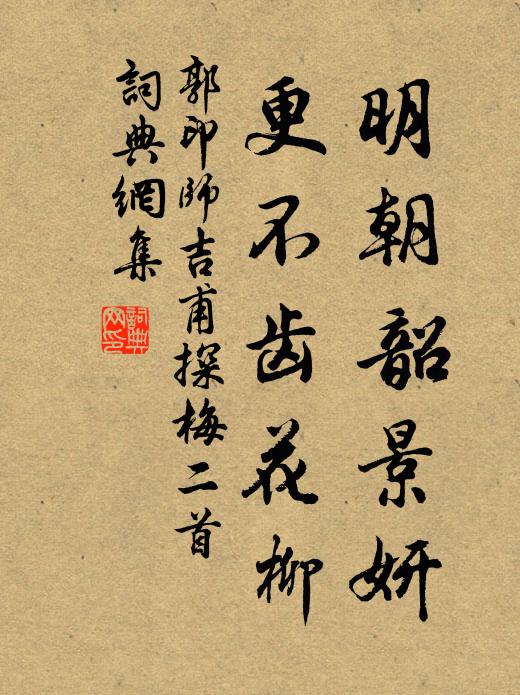 明朝韶景妍
更不齿花柳
郭印師吉甫探梅二首
詞典網集
詞典网印